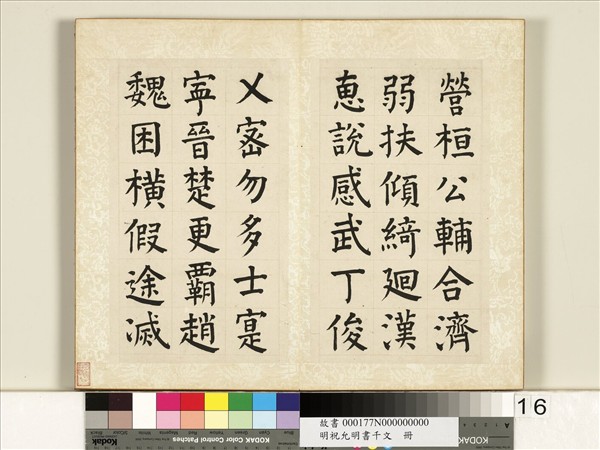 營桓公輔合濟
弱扶傾綺廻漢
恵說感武丁俊
乂密勿多士寔
寜晉楚更霸趙
魏困横假途滅
16
故書 000177N000000000
明祝允明書千文 冊
KODAK Color Control Patches
Kodak
KODAK